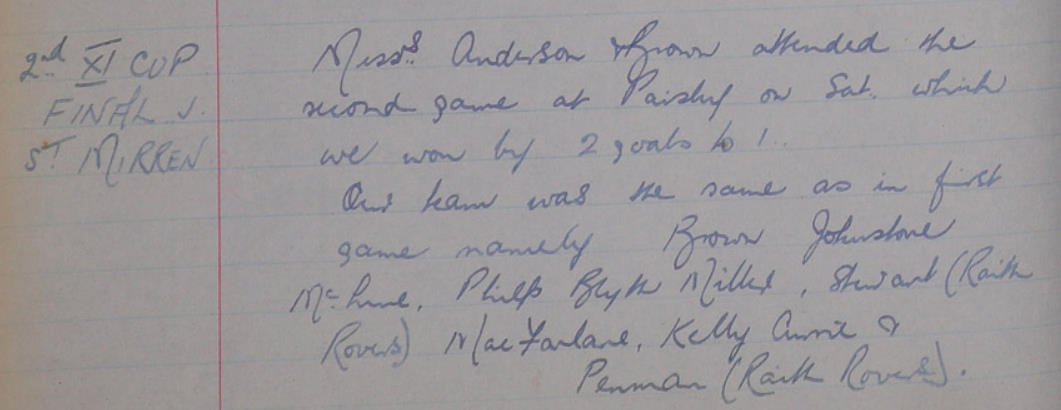 2nd XI CUP
FINAL V.
ST MIRREN
Messrs Anderson & Brown attended the
second game at Paisley on Sat. which
we won by 2 goals to 1.
Our team was the same as in first
game namely Brown Johnstone
Philp Blyth Miller, Stewart (Raith
Rovers) MacFarlane, Kelly Currie &
Penman (Raith Rovers).